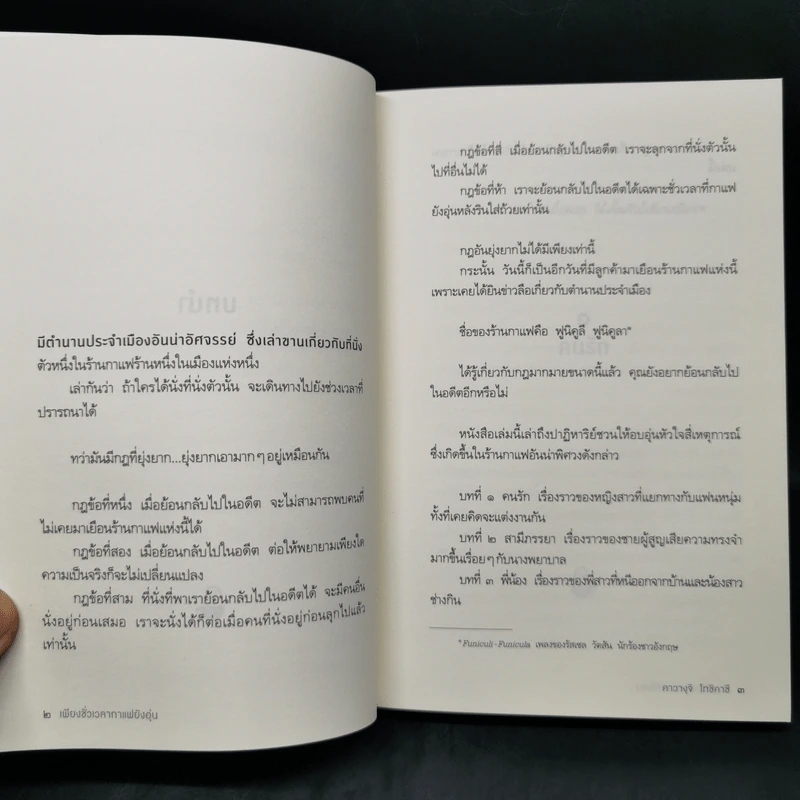 มีตำนานประจำเมืองอันน่าอัศจรรย์ ซึ่งเล่าขานเกี่ยวกับที่นั่ง
ตัวหนึ่งในร้านกาแฟร้านหนึ่งในเมืองแห่งหนึ่ง
เล่ากันว่า ถ้าใครได้นั่งที่นั่งตัวนั้น จะเดินทางไปยังช่วงเวลาที่
ปรารถนาได้
ทว่ามันมีกฎที่ยุ่งยาก...ยุ่งยากเอามากๆ อยู่เหมือนกัน
กฎข้อที่หนึ่ง เมื่อย้อนกลับไปในอดีต จะไม่สามารถพบคนที่
ไม่เคยมาเยือนร้านกาแฟแห่งนี้ได้
กฎข้อที่สอง เมื่อย้อนกลับไปในอดีต ต่อให้พยายามเพียงใด
ความเป็นจริงก็จะไม่เปลี่ยนแปลง
กฎข้อที่สาม ที่นั่งที่พาเราย้อนกลับไปในอดีตได้ จะมีคนอื่น
นั่งอยู่ก่อนเสมอ เราจะนั่งได้ก็ต่อเมื่อคนที่นั่งอยู่ก่อนลุกไปแล้ว
เท่านั้น
๒ เพียงชั่วเวลากาแฟยังอุ่น
กฎข้อที่สี่ เมื่อย้อนกลับไปในอดีต เราจะลุกจากที่นั่งตัวนั้น
ไปที่อื่นไม่ได้
กฎข้อที่ห้า เราจะย้อนกลับไปในอดีตได้เฉพาะชั่วเวลาที่กาแฟ
ยังอุ่นหลังรินใส่ถ้วยเท่านั้น
กฎอันยุ่งยากไม่ได้มีเพียงเท่านี้
กระนั้น วันนี้ก็เป็นอีกวันที่มีลูกค้ามาเยือนร้านกาแฟแห่งนี้
เพราะเคยได้ยินข่าวลือเกี่ยวกับตำนานประจำเมือง
ชื่อของร้านกาแฟคือ ฟูนิคูลี ฟูนิคูลา*
ได้รู้เกี่ยวกับกฎมากมายขนาดนี้แล้ว คุณยังอยากย้อนกลับไป
ในอดีตอีกหรือไม่
หนังสือเล่มนี้เล่าถึงปาฏิหาริย์ชวนให้อบอุ่นหัวใจสี่เหตุการณ์
ซึ่งเกิดขึ้นในร้านกาแฟอันน่าพิศวงดังกล่าว
บทที่ ๑ คนรัก เรื่องราวของหญิงสาวที่แยกทางกับแฟนหนุ่ม
ทั้งที่เคยคิดจะแต่งงานกัน
บทที่ ๒ สามีภรรยา เรื่องราวของชายผู้สูญเสียความทรงจำ
มากขึ้นเรื่อยๆ กับนางพยาบาล
บทที่ ๓ พี่น้อง เรื่องราวของพี่สาวที่หนีออกจากบ้านและน้องสาว
ช่างกิน
* Funiculi-Funicula เพลงของรัสเซล วัตสัน นักร้องชาวอังกฤษ
คาวางุจิ โทชิคาซึ ๓